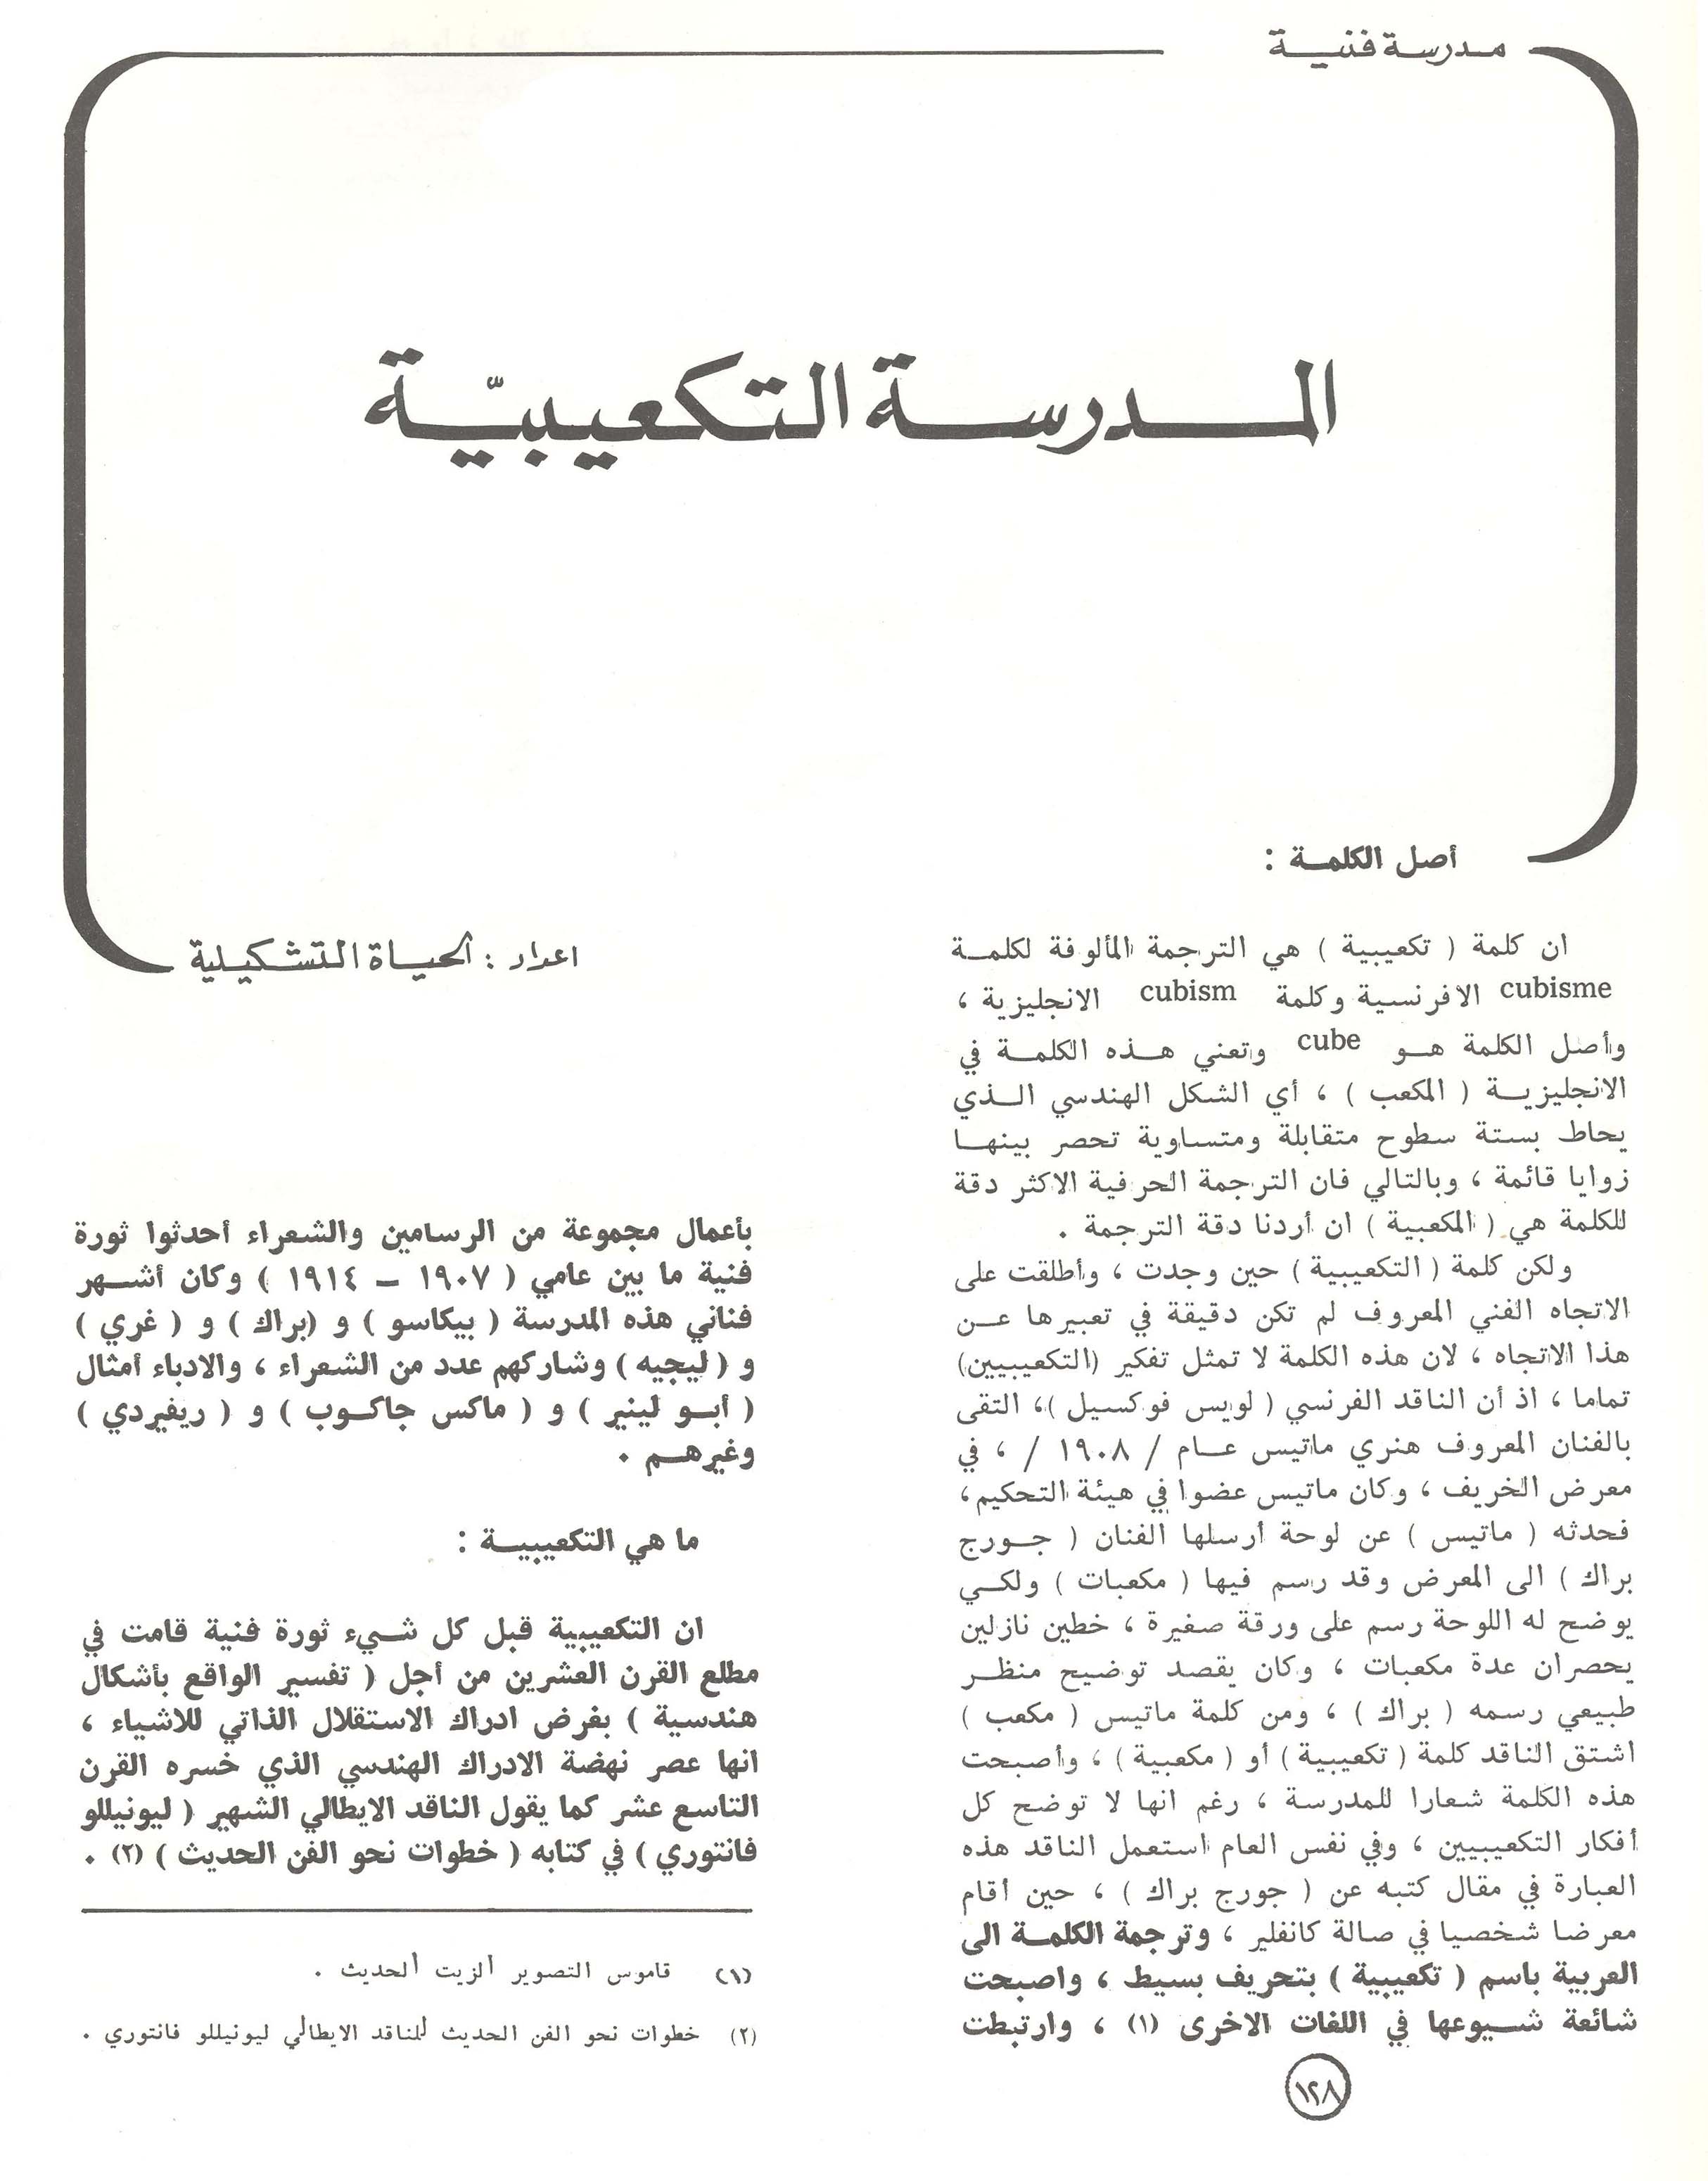 مدرسة فنية
المدرسة التكعيبيّة
أصل الكلمة :
ان كلمة ( تكعيبية ) هي الترجمة المألوفة لكلمة
cubisme الافرنسية وكلمة cubism الانجليزية ،
وأصل الكلمة هو cube وتعني هذه الكلمة في
الانجليزية ( المكعب ) ، أي الشكل الهندسي الذي
يحاط بستة سطوح متقابلة ومتساوية تحصر بينها
زوايا قائمة ، وبالتالي فان الترجمة الحرفية الاكثر دقة
للكلمة هي ( المكعبية ) ان أردنا دقة الترجمة .
ولكن كلمة ( التكعيبية ) حين وجدت ، وأطلقت على
الاتجاه الفني المعروف لم تكن دقيقة في تعبيرها عن
هذا الاتجاه ، لان هذه الكلمة لا تمثل تفكير (التكعيبيين)
تماما ، اذ أن الناقد الفرنسي ( لويس فوكسيل )، التقى
بالفنان المعروف هنري ماتيس عام / ١٩٠٨ / ، في
معرض الخريف ، وكان ماتيس عضوا في هيئة التحكيم،
فحدثه ( ماتيس ) عن لوحة أرسلها الفنان ( جورج
براك ) الى المعرض وقد رسم فيها ( مكعبات ) ولكي
يوضح له اللوحة رسم على ورقة صغيرة ، خطين نازلين
يحصران عدة مكعبات ، وكان يقصد توضيح منظر
طبيعي رسمه ( براك ) ، ومن كلمة ماتيس ( مكعب )
اشتق الناقد كلمة ( تكعيبية ) أو ( مكعبية ) ، وأصبحت
هذه الكلمة شعارا للمدرسة ، رغم انها لا توضح كل
أفكار التكعيبيين ، وفي نفس العام استعمل الناقد هذه
العبارة في مقال كتبه عن ( جورج براك ) ، حين أقام
معرضا شخصيا في صالة كانفلير ، وترجمة الكلمة الى
العربية باسم ( تكعيبية ) بتحريف بسيط ، واصبحت
شائعة شيوعها في اللغات الاخرى (١) ، وارتبطت
اعداد : الحياة التشكيلية
بأعمال مجموعة من الرسامين والشعراء أحدثوا ثورة
فنية ما بين عامي ( ١٩٠٧ – ١٩١٤ ) وكان أشهر
فناني هذه المدرسة ( بيكاسو ) و (براك ) و ( غري )
و ( ليجيه ) وشاركهم عدد من الشعراء ، والادباء أمثال
( أبو لينير ) و ( ماكس جاكوب ) و ( ريفيردي )
وغيرهم .
ما هي التكعيبية :
ان التكعيبية قبل كل شيء ثورة فنية قامت في
مطلع القرن العشرين من أجل ( تفسير الواقع بأشكال
هندسية ) بغرض ادراك الاستقلال الذاتي للاشياء ،
انها عصر نهضة الادراك الهندسي الذي خسره القرن
التاسع عشر كما يقول الناقد الايطالي الشهير ( ليونيللو
فانتوري ) في كتابه ( خطوات نحو الفن الحديث ) (٢) .
(١) قاموس التصوير ألزيت ألحديث .
(٢) خطوات نحو الفن الحديث للناقد الايطالي ليونيللو فانتوري .
١٢٨